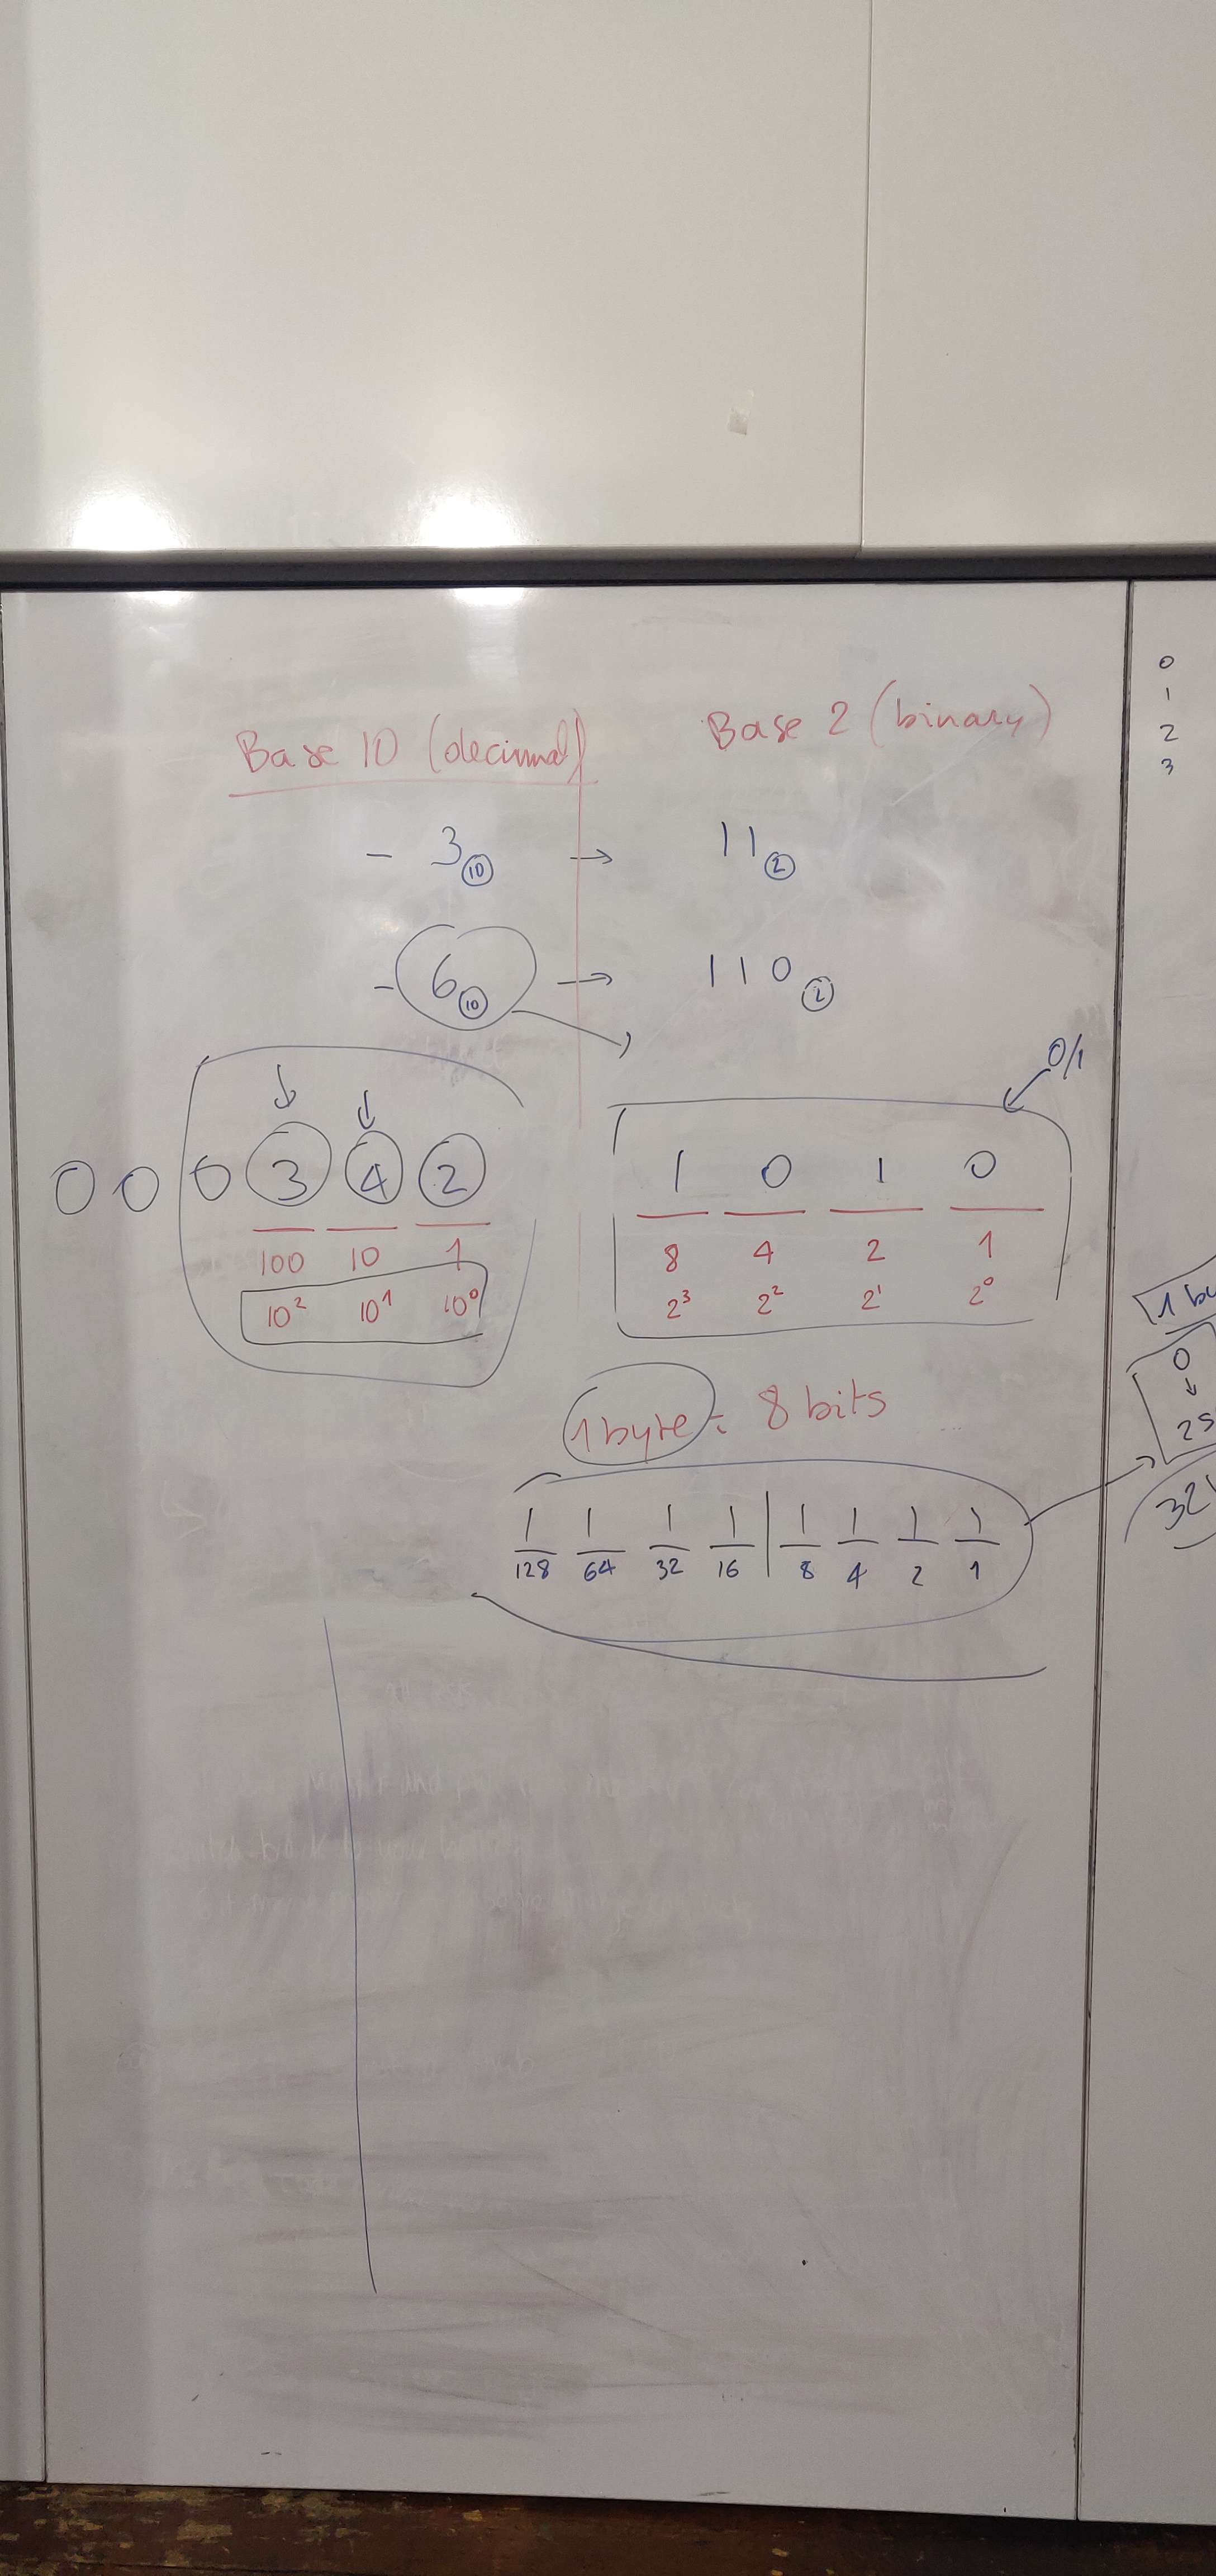 Base 10 (decimal)
Base 2 (binary)
- 3 10 → 11 2
- 6 10 → 110 2
0/1
0 0 0 3 4 2
100 10 1
10² 10¹ 10⁰
1 0 1 0
8 4 2 1
2³ 2² 2¹ 2⁰
1 byte = 8 bits
1 1 1 1 | 1 1 1 1
128 64 32 16 8 4 2 1
0
1
2
3
1 by
0
↓
25
32